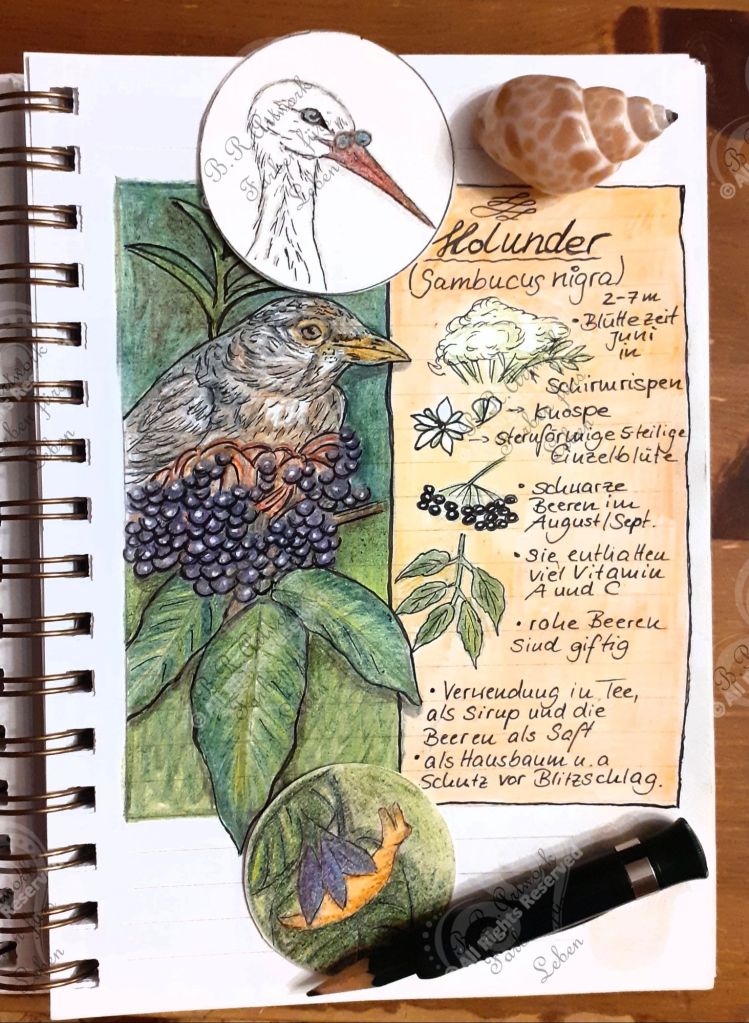 Holunder
(Sambucus nigra)
2-7m
• Blütezeit
Juni
in
Schirmrispen
→ Knospe
→ sternförmige 5teilige
Einzelblüte
• schwarze
Beeren im
August/Sept.
• sie enthalten
viel Vitamin
A und C
• rohe Beeren
sind giftig
• Verwendung in Tee,
als Sirup und die
Beeren als Saft
• als Hausbaum u.a
Schutz vor Blitzschlag.
B.R.Artwork
Farben fürs
Leben
© All Rights Reserved